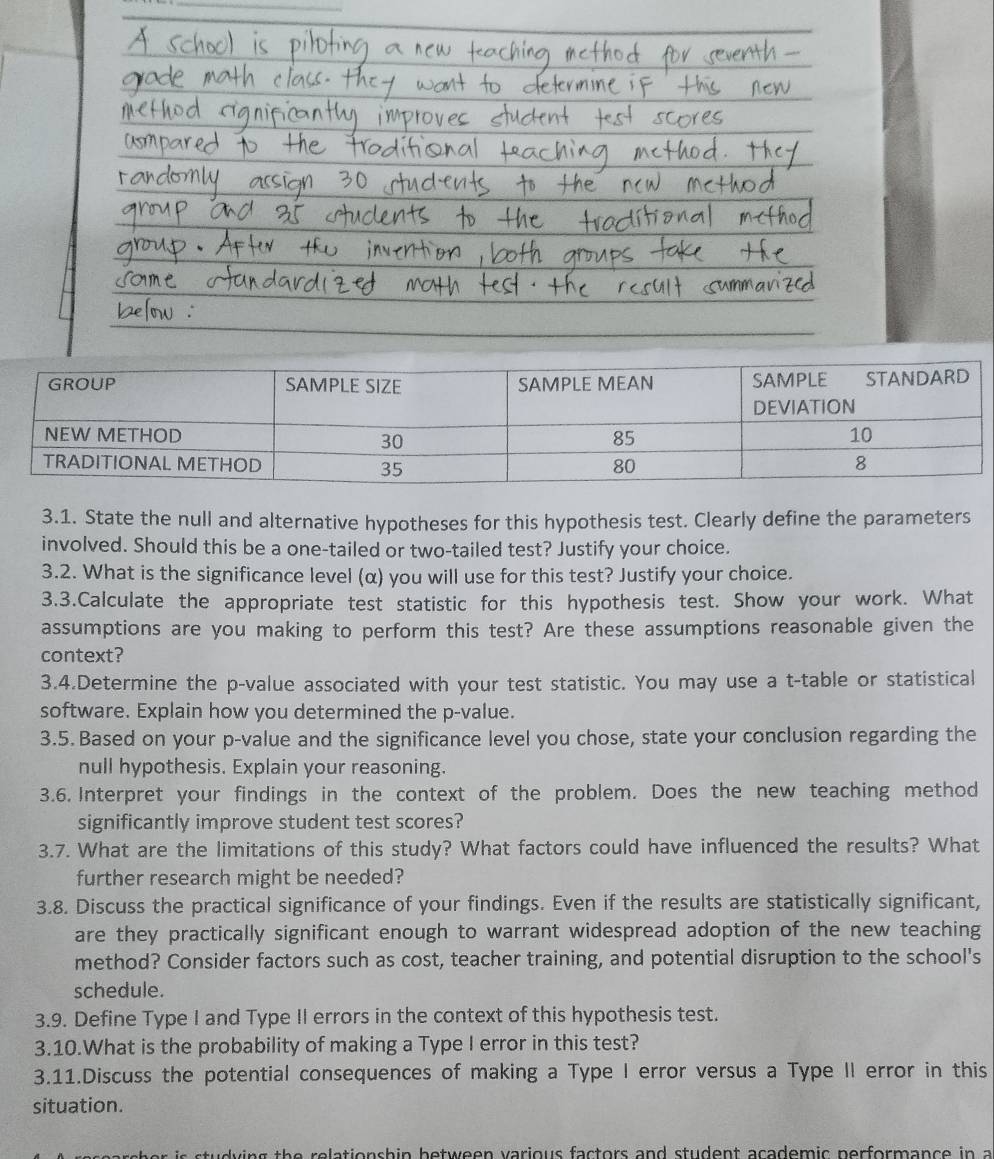 A school is piloting a new teaching method for seventh-
grade math class. they want to determine if this new
method significantly improves student test scores
compared to the traditional teaching method. they
randomly assign 30 students to the new method
group and 35 students to the traditional method
group. After the invention, both groups take the
same standardized math test. the result summarized
below:
GROUP SAMPLE SIZE SAMPLE MEAN SAMPLE STANDARD
DEVIATION
NEW METHOD 30 85 10
TRADITIONAL METHOD 35 80 8
3.1. State the null and alternative hypotheses for this hypothesis test. Clearly define the parameters
involved. Should this be a one-tailed or two-tailed test? Justify your choice.
3.2. What is the significance level (α) you will use for this test? Justify your choice.
3.3.Calculate the appropriate test statistic for this hypothesis test. Show your work. What
assumptions are you making to perform this test? Are these assumptions reasonable given the
context?
3.4.Determine the p-value associated with your test statistic. You may use a t-table or statistical
software. Explain how you determined the p-value.
3.5. Based on your p-value and the significance level you chose, state your conclusion regarding the
null hypothesis. Explain your reasoning.
3.6. Interpret your findings in the context of the problem. Does the new teaching method
significantly improve student test scores?
3.7. What are the limitations of this study? What factors could have influenced the results? What
further research might be needed?
3.8. Discuss the practical significance of your findings. Even if the results are statistically significant,
are they practically significant enough to warrant widespread adoption of the new teaching
method? Consider factors such as cost, teacher training, and potential disruption to the school's
schedule.
3.9. Define Type I and Type II errors in the context of this hypothesis test.
3.10.What is the probability of making a Type I error in this test?
3.11.Discuss the potential consequences of making a Type I error versus a Type II error in this
situation.
researcher is studying the relationship between various factors and student academic performance in a